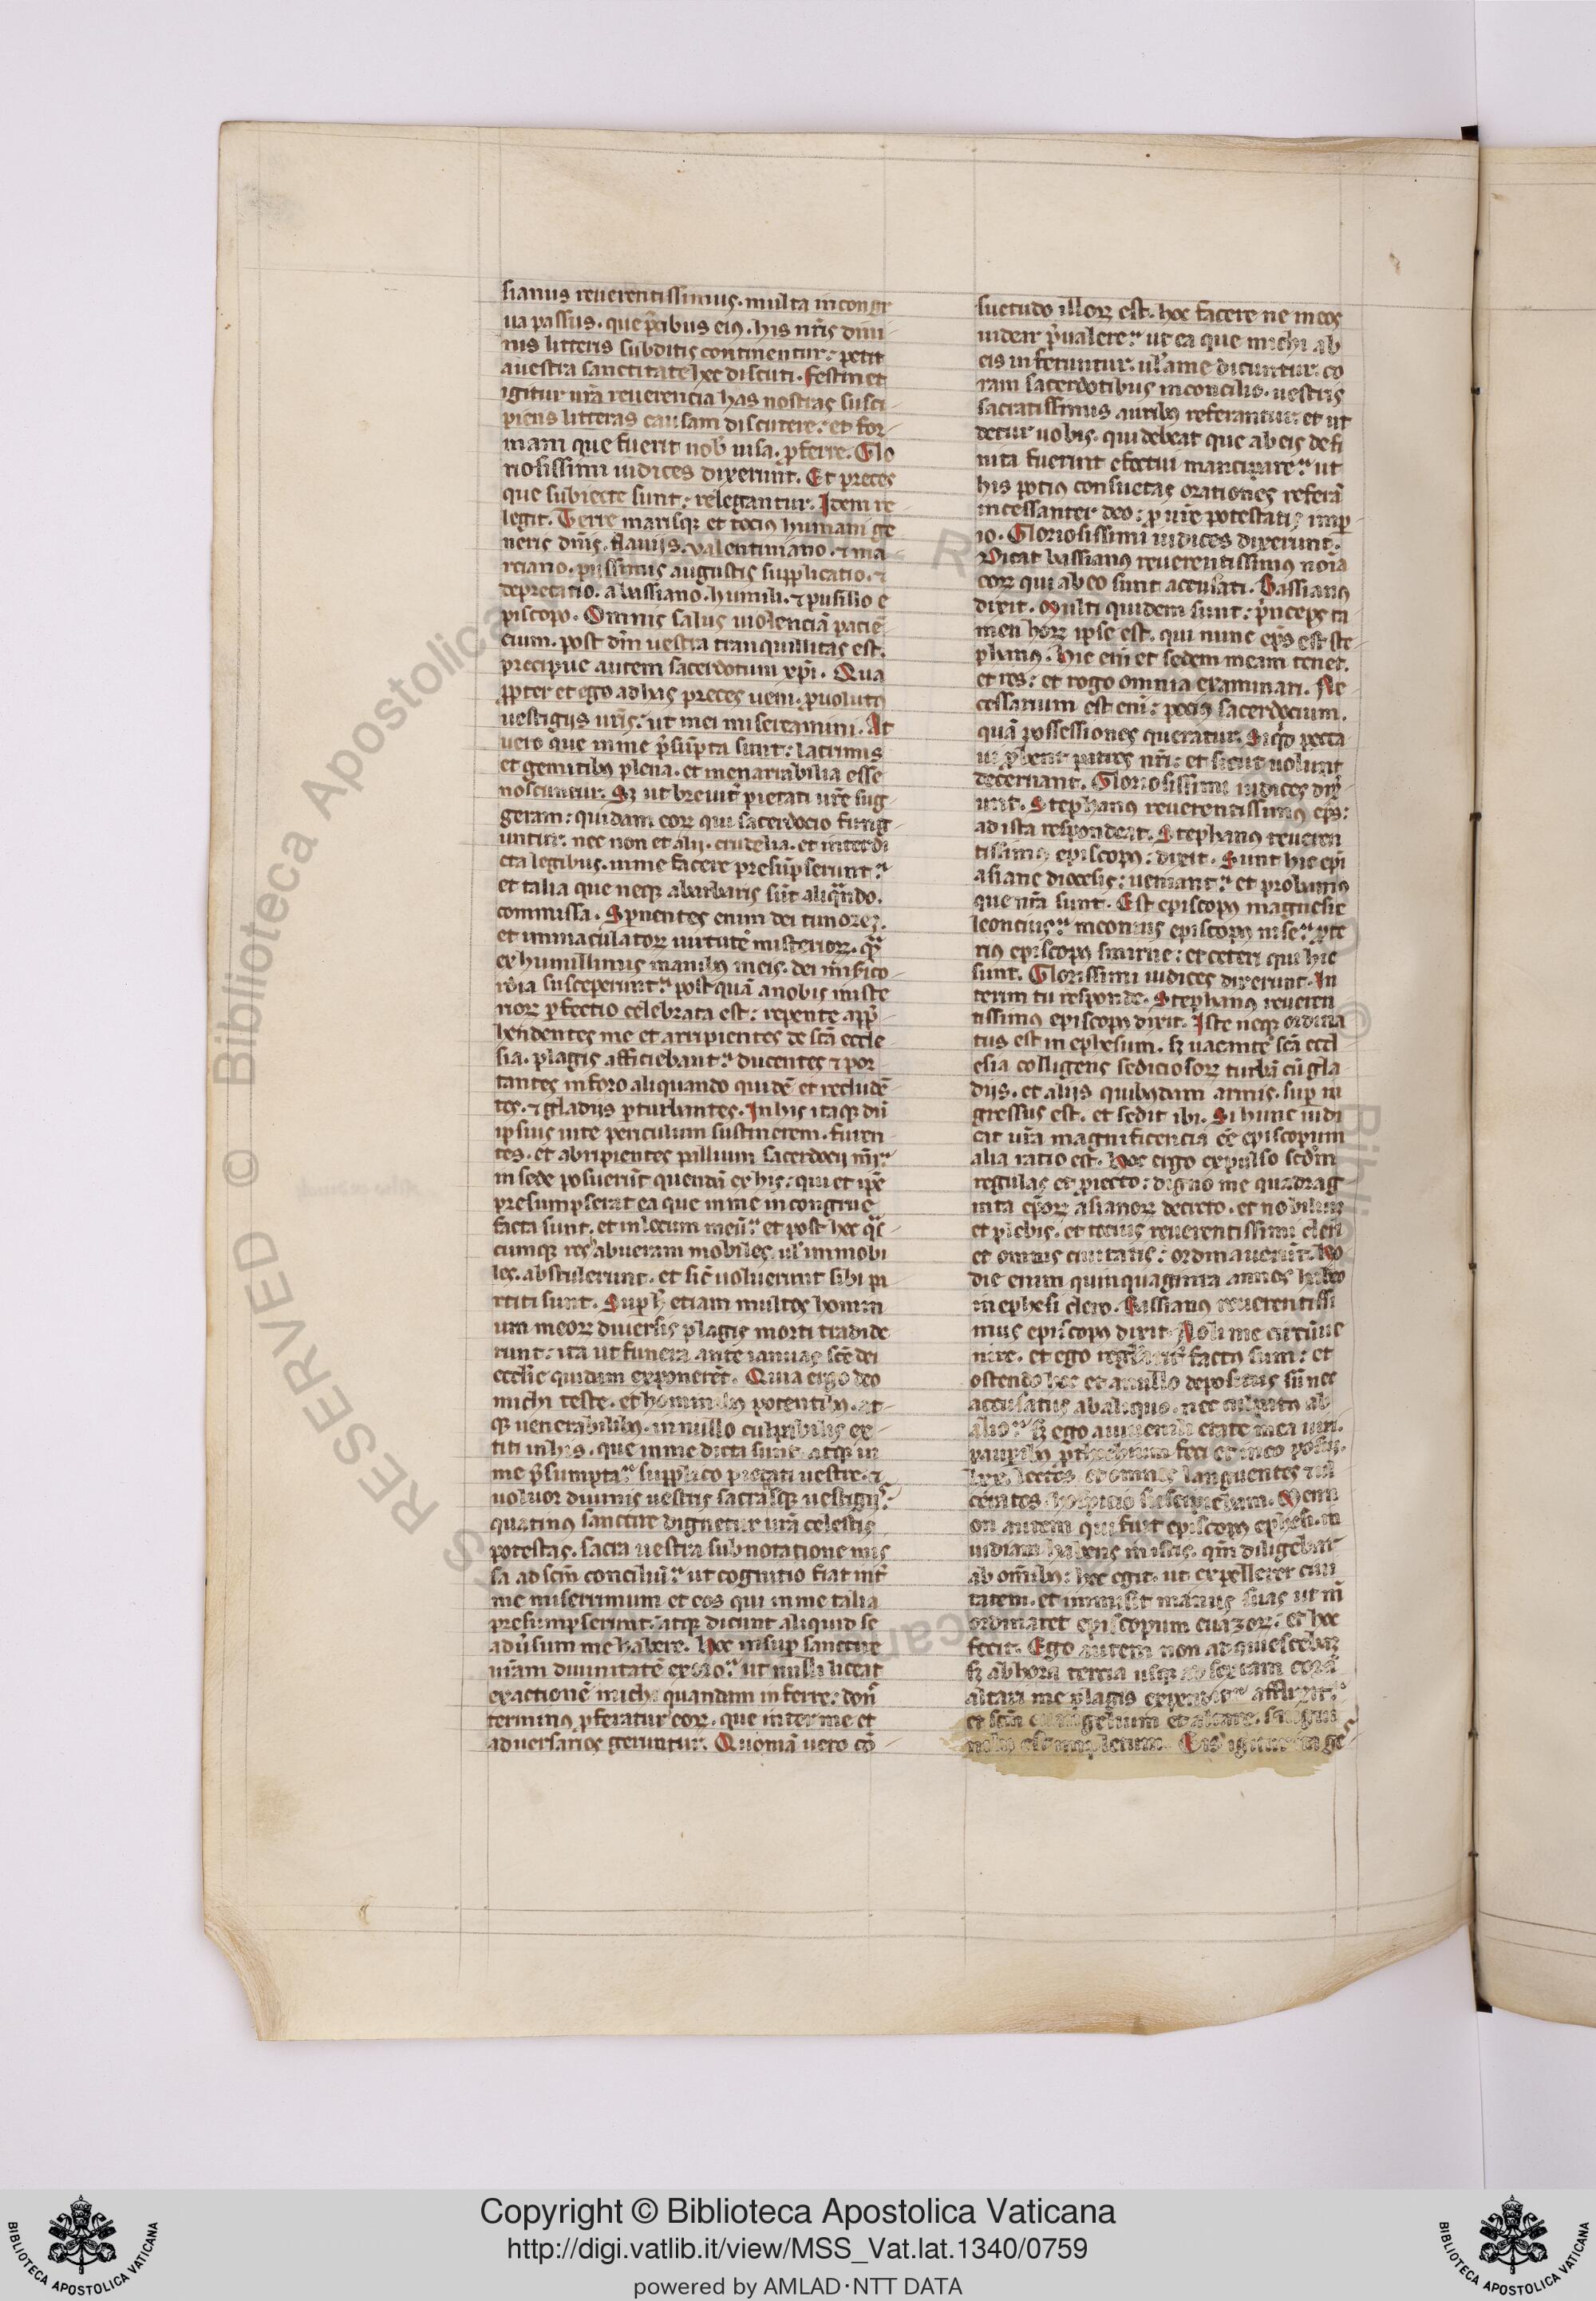 sianus reuerentissimus. multa incongr
ua passus. que p̄cibus eiꝰ. his nr̄is diui
nis litteris subditis continentur: petit
a uestra sanctitate hec discuti. Festinet
igitur ur̄a reuerencia has nostras susci
piens litteras causam discutere: et for
mam que fuerit uob̄ uisa. ꝓferre. Glo
riosissimi iudices dixerunt. Et preces
que subiecte sunt: relegantur. Idem re
legit. Terre marisqꝫ et tociꝰ humani ge
neris dn̄is. flauijs. valentiniano. ⁊ ma
rciano. pijssimis augustis supplicatio. ⁊
deprecatio. a bassiano. humili. ⁊ pusillo e
piscopo. Omnis salus uiolenciā paciē
cium. post dm̄ uestra tranquillitas est.
precipue autem sacerdotum xp̄i. Qua
ꝓpter et ego ad has preces ueni. ꝓuolutꝰ
uestigijs ur̄is: ut mei misereamini. At
uero que in me p̄sūpta sunt: lacrimis
et gemitibꝰ plena. et inenarrabilia esse
noscuntur. Sꝫ ut breuit̄ pietati ur̄e sug
geram: quidam eorꝝ qui sacerdocio fung
untur. nec non et alij. crudelia. et interdi
cta legibus. in me facere presūpserunt:
et talia que neqꝫ a barbaris sūt aliqn̄do.
commissa. Spnentes enim dei timorez.
et immaculatorꝝ uirtutē misteriorꝝ. q̄
ex humillimis manibꝰ meis. dei misico
rdia susceperunt: postquā a nobis miste
riorꝝ ꝑfectio celebrata est: repente app̄
hendentes me et arripientes de scā eccle
sia. plagis afficiebant: ducentes ⁊ por
tantes in foro aliquando quidē et recludē
tes. ⁊ gladijs ꝑturbantes. In his itaqꝫ dū
ipsius uite periculum sustinerem. furen
tes. et abripientes pallium sacerdocij mij:
in sede posuerūt quendā ex his: qui et ip̄e
presumpserat ea que in me incongrue
facta sunt. et in locum meū: et post hec q̄
cumqꝫ res abueram mobiles. ul immobi
les. abstulerunt. et sic̄ uoluerunt sibi pa
rtiti sunt. Sup h̄ etiam multos homin
um meorꝝ diuersis plagis morti tradide
runt: ita ut funera ante ianuas scē dei
ecclie quidam exponerēt. Quia ergo deo
michi teste. et hominibꝰ potentibꝰ. at
qꝫ uenerabilibꝰ. in nullo culpabilis ex
titi in his. que in me dicta sunt. atqꝫ in
me p̄sumpta: supplico pietati uestre. ⁊
uoluor diuinis uestris sacrisqꝫ uestigijs:
quatinꝰ sanctire dignetur ur̄a celestis
potestas. sacra uestra subnotatione mis
sa ad scm̄ conciliū: ut cognitio fiat int̄
me miserrimum et eos qui in me talia
presumpserunt: atqꝫ dicunt aliquid se
adūsum me habere. Hoc insup sanctire
ur̄am diuinitatē exoro: ut nulli liceat
exactionē michi quandam inferre: don̄
terminꝰ ꝓferatur eorꝝ. que inter me et
aduersarios geruntur. Quoniā uero cō
suetudo illorꝝ est. hoc facere ne meos
uident̄ p̄ualere: ut ea que michi ab
eis inferuntur. ul a me dicuntur. co
ram sacerdotibus in concilio. uestris
sacratissimis auribꝰ referantur: et ut
detur uobis. qui debeat que ab eis defi
nita fuerint efectui mancipare: ut
his potiꝰ consuetas orationes referā
incessanter deo: ꝓ ur̄e potestatis imp
io. Gloriosissimi iudices dixerunt.
Dicat bassianꝰ reuerentissimꝰ noīa
eorꝝ qui ab eo sunt accusati. Bassianꝰ
dixit. Multi quidem sunt: p̄nceps ta
men horꝝ ipse est. qui nunc ep̄s est ste
phanꝰ. Hic enī et sedem meam tenet.
et res: et rogo omnia examinari. Ne
cessarium est enī: pociꝰ sacerdocium.
quā possessiones queratur. Siqd pecca
ui ꝓbent patres nr̄i: et sicut uolunt
decernant. Gloriosissimi iudices dix̄
unt. Stephanus reuerentissimꝰ ep̄s:
ad ista respondeat. Stephanus reueren
tissimꝰ episcopꝰ: dixit. Sunt hic ep̄i
asiane diocesis: ueniant: et probamꝰ
que nr̄a sunt. Est episcopꝰ magnesie
leoncius: meonius episcopꝰ nise: ꝓte
riꝰ episcopꝰ smirne: et ceteri qui hic
sunt. Glorissimi iudices dixerunt. In
terim tu responde. Stephanus reueren
tissimꝰ episcopꝰ dixit. Iste neqꝫ ordina
tus est in ephesum. sꝫ uacante scā eccl
esia colligens sediciosorꝝ turbā cū gla
dijs. et alijs quibusdam armis. sup in
gressus est. et sedit ibi. Si hunc iudi
cat ur̄a magnificencia eē episcopum
alia ratio est. Hoc ergo expulso scdm̄
regulas et piecto: digno me quadrag
inta ep̄orꝝ asianorꝝ decreto. et nobilium
et plebis. et tocius reuerentissimi cleri
et omnis ciuitatis: ordinauerūt. Ho
die enim quinquaginta annos habeo
in ephesi clero. Bassianꝰ reuerentissi
mus episcopꝰ dixit. Noli me circūue
nire. et ego regularit̄ factꝰ sum: et
ostendo hoc et a nullo depositus sū nec
accusatus ab aliquo. nec culpatꝰ ab
alio: sꝫ ego a iuuenili etate mea
pauꝑibꝰ feci et meo posui.
lxx. lectos. et omnes languentes
hospicio suscipiebam. Mem
on autem qui fuit episcopꝰ ephesi. in
uidiam habens qm̄ diligebar
ab omībꝰ: hec egit. ut expellerer ciui
tatem. et inmisit manus suas ut m̄
ordinaret episcopum euazorꝝ: et hoc
fecit. Ego autem non acquiescebaz
sꝫ ab hora tercia usqꝫ ad sextam corā
altari me plagis affluxit:
et scm̄ euangelium et altare. sangui
est impletum. Eis